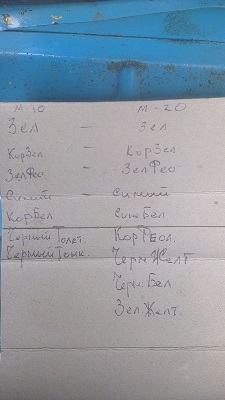 М-10 М-20
Зел — Зел
КорЗел — КорЗел
ЗелФео — ЗелФео
Синий — Синий
КорБел СинБел
Черный Толст. КорФеол.
Черный Тонк. Черн.Желт
Черн.Бел
Зел.Желт.